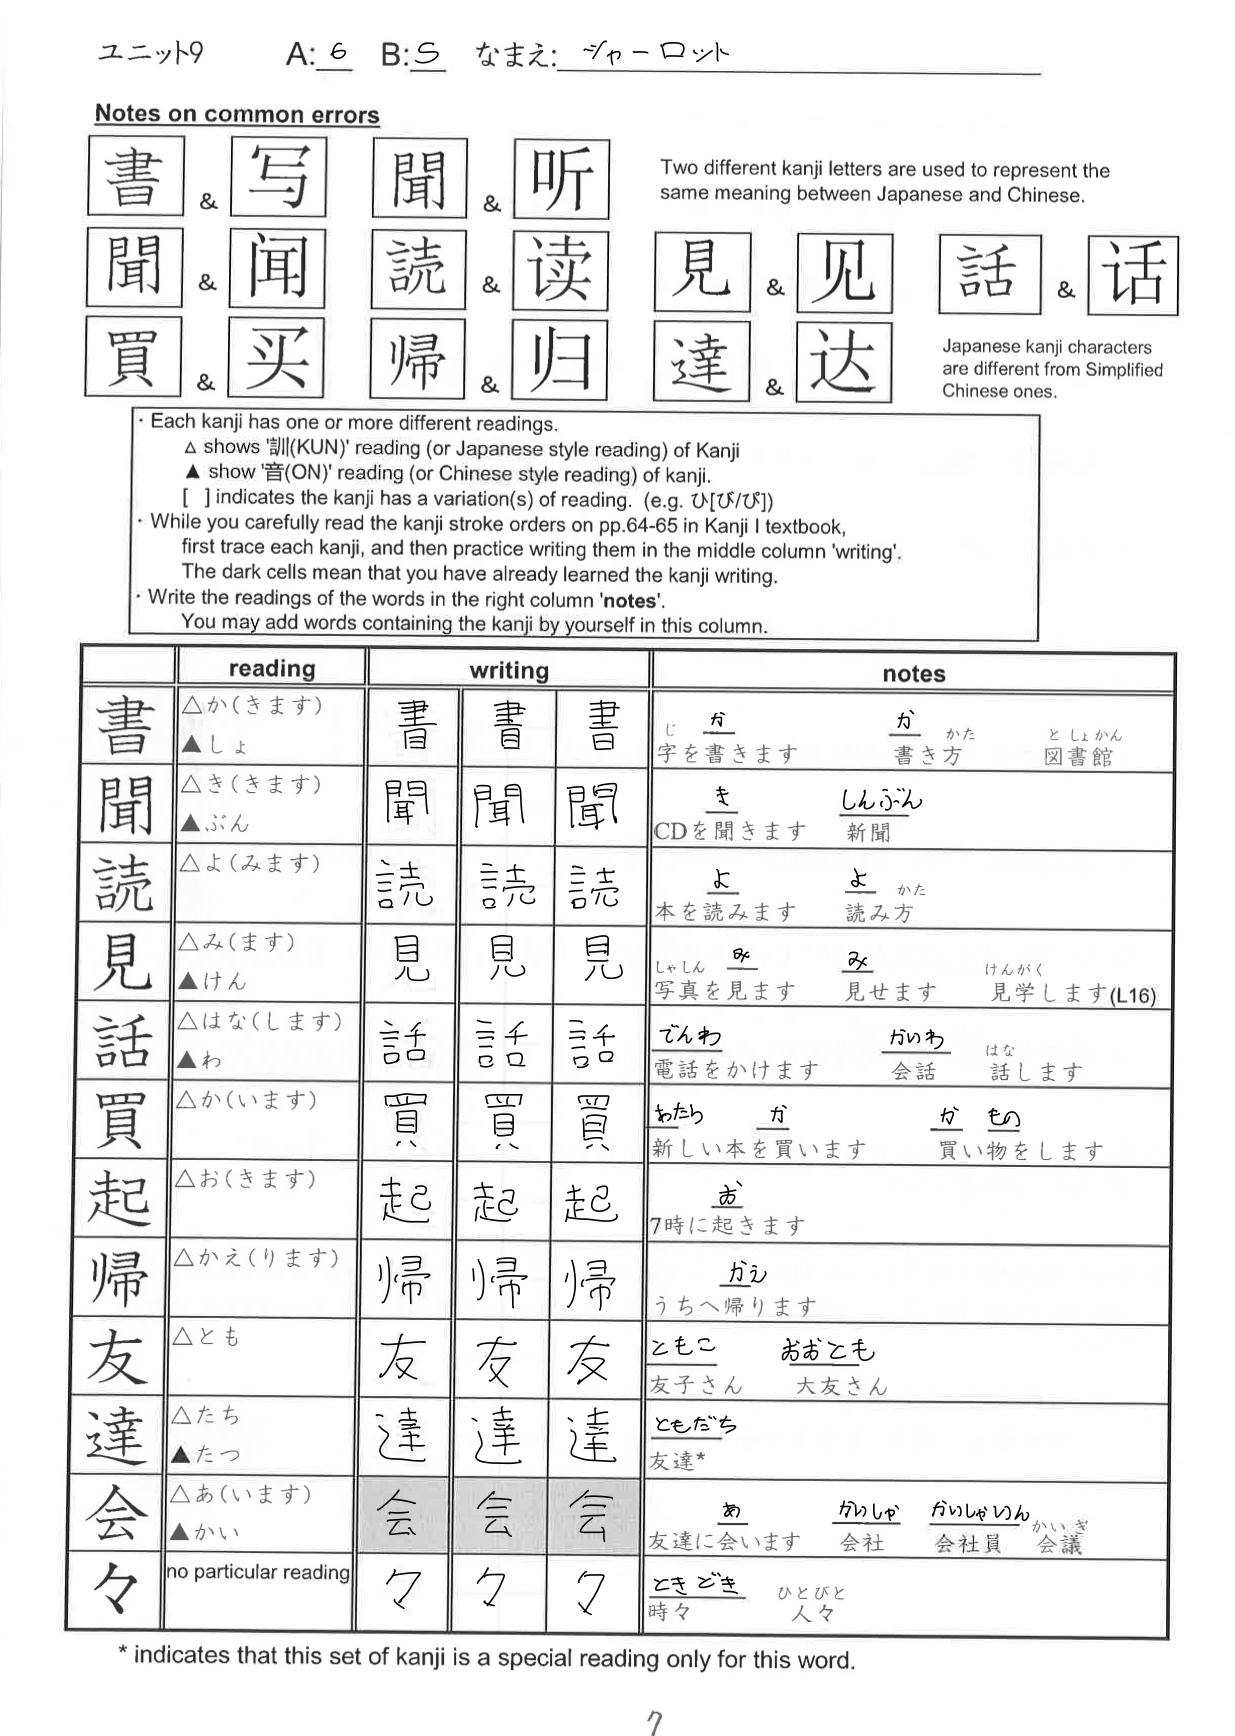 ユニット9 A: 6 B: S なまえ: シャーロット
Notes on common errors
書 & 写 聞 & 听 Two different kanji letters are used to represent the
same meaning between Japanese and Chinese.
聞 & 闻 読 & 读 見 & 见 話 & 话
買 & 买 帰 & 归 達 & 达 Japanese kanji characters
are different from Simplified
Chinese ones.
・Each kanji has one or more different readings.
△ shows '訓(KUN)' reading (or Japanese style reading) of Kanji
▲ show '音(ON)' reading (or Chinese style reading) of kanji.
[ ] indicates the kanji has a variation(s) of reading. (e.g. ひ[び/ぴ])
・While you carefully read the kanji stroke orders on pp.64-65 in Kanji I textbook,
first trace each kanji, and then practice writing them in the middle column 'writing'.
The dark cells mean that you have already learned the kanji writing.
・Write the readings of the words in the right column 'notes'.
You may add words containing the kanji by yourself in this column.
reading writing notes
書 △か(きます) 書 書 書
▲しょ
じ か か かた と しょかん
字を書きます 書き方 図書館
聞 △き(きます) 聞 聞 聞
▲ぶん
き しんぶん
CDを聞きます 新聞
読 △よ(みます) 読 読 読
よ よ かた
本を読みます 読み方
見 △み(ます) 見 見 見
▲けん
しゃしん み み けんがく
写真を見ます 見せます 見学します(L16)
話 △はな(します) 話 話 話
▲わ
でんわ かいわ はな
電話をかけます 会話 話します
買 △か(います) 買 買 買
あたら か か もの
新しい本を買います 買い物をします
起 △お(きます) 起 起 起
お
7時に起きます
帰 △かえ(ります) 帰 帰 帰
かえ
うちへ帰ります
友 △とも 友 友 友
ともこ おおとも
友子さん 大友さん
達 △たち 達 達 達
▲たつ
ともだち
友達*
会 △あ(います) 会 会 会
▲かい
あ かいしゃ かいしゃいん かいぎ
友達に会います 会社 会社員 会議
々 no particular reading 々 々 々
ときどき ひとびと
時々 人々
* indicates that this set of kanji is a special reading only for this word.
7